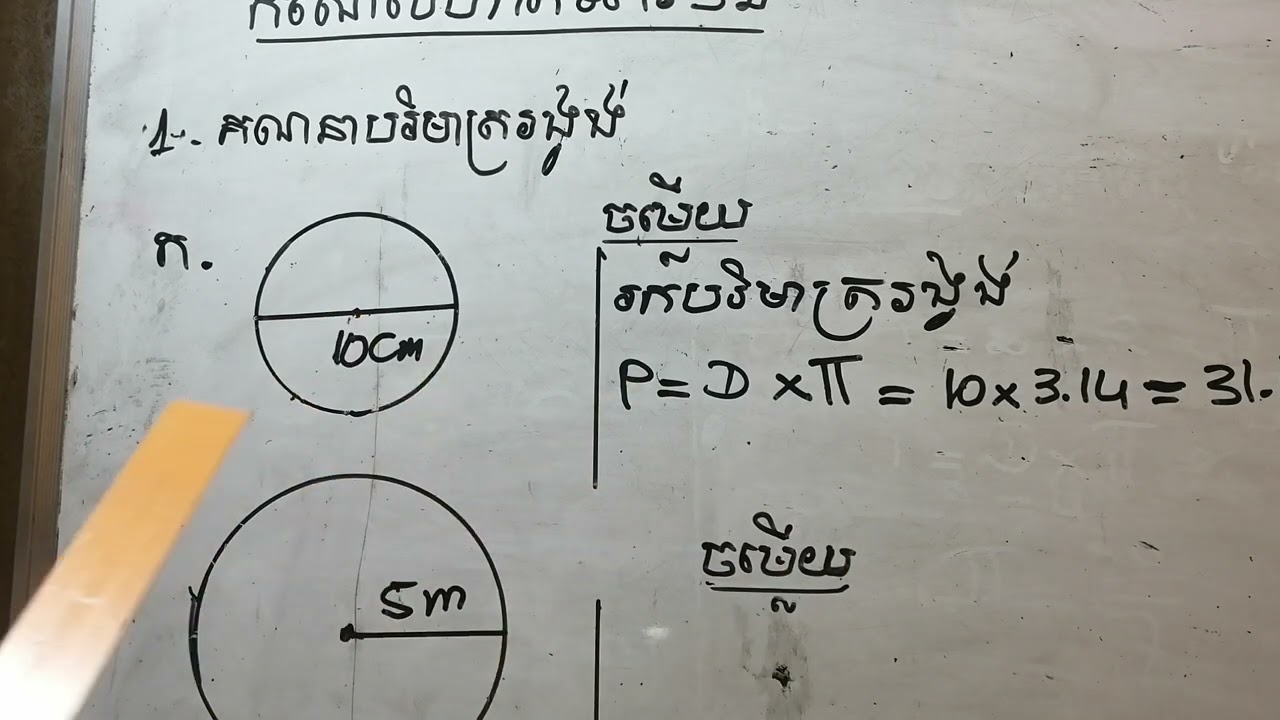 1-. គណនាបរិមាត្ររង្វង់
ក.
10cm
ចម្លើយ
រកបរិមាត្ររង្វង់
P = D × π = 10 × 3.14 = 31.
5m
ចម្លើយ